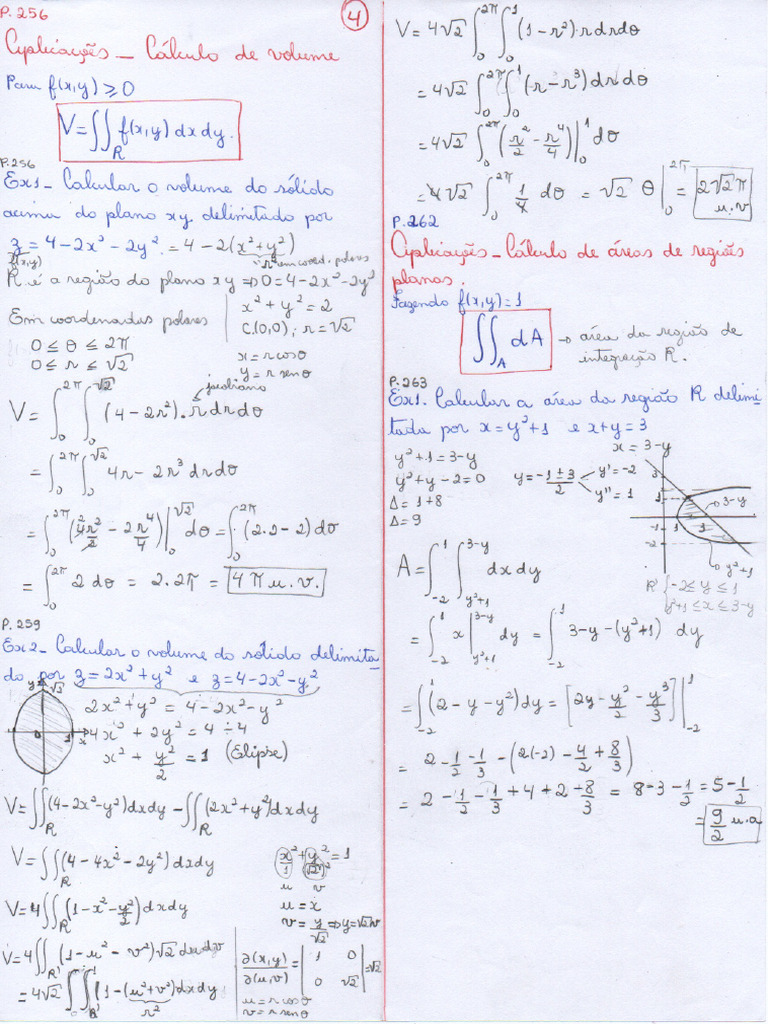 P.256
4
Aplicações - Cálculo de volume
Para f(x,y) ≥ 0
V = ∬_R f(x,y) dx dy.
P.256
Ex1 - Calcular o volume do sólido
acima do plano xy delimitado por
z = 4 - 2x² - 2y². = 4 - 2(x² + y²)
f(x,y)
r² em coord. polares
R é a região do plano xy ⇒ 0 = 4 - 2x² - 2y²
x² + y² = 2
Em coordenadas polares
C.(0,0); r = √2
0 ≤ θ ≤ 2π
0 ≤ r ≤ √2
x = r cosθ
y = r senθ
jacobiano
V = ∫_0^{2π} ∫_0^{√2} (4 - 2r²) · r dr dθ
= ∫_0^{2π} ∫_0^{√2} 4r - 2r³ dr dθ
= ∫_0^{2π} (4r²/2 - 2r⁴/4) |_0^{√2} dθ = ∫_0^{2π} (2.2 - 2) dθ
= ∫_0^{2π} 2 dθ = 2.2π = 4π u.v.
P.259
Ex2 - Calcular o volume do sólido delimita
do por z = 2x² + y² e z = 4 - 2x² - y²
y √2
0 1 x
2x² + y² = 4 - 2x² - y²
4x² + 2y² = 4 ÷4
x² + y²/2 = 1 (Elipse)
V = ∬_R (4 - 2x² - y²) dx dy - ∬_R (2x² + y²) dx dy
V = ∬_R (4 - 4x² - 2y²) dx dy
x²/1 + y²/(√2)² = 1
u v
V = 4 ∬_R (1 - x² - y²/2) dx dy
u = x
v = y/√2 ⇒ y = √2 v
V = 4 ∬_R' (1 - u² - v²) √2 du dv
∂(x,y)/∂(u,v) = |1 0; 0 √2| = √2
= 4√2 ∬_R' 1 - (u² + v²) dx dy
r²
u = r cosθ
v = r senθ
V = 4√2 ∫_0^{2π} ∫_0^1 (1 - r²) · r dr dθ
= 4√2 ∫_0^{2π} ∫_0^1 (r - r³) dr dθ
= 4√2 ∫_0^{2π} (r²/2 - r⁴/4) |_0^1 dθ
= 4√2 ∫_0^{2π} 1/4 dθ = √2 θ |_0^{2π} = 2√2 π u.v
P.262
Aplicações - Cálculo de áreas de regiões
planas.
Fazendo f(x,y) = 1
∬_A dA → área da região de
integração R.
P.263
Ex1. Calcular a área da região R delimi
tada por x = y² + 1 e x + y = 3
x = 3 - y
y² + 1 = 3 - y
y² + y - 2 = 0
Δ = 1 + 8
Δ = 9
y = (-1 ± 3)/2
y' = -2
y'' = 1
3
1
3 - y
-1 1 3
-2
y² + 1
A = ∫_{-2}^1 ∫_{y²+1}^{3-y} dx dy
R { -2 ≤ y ≤ 1
y² + 1 ≤ x ≤ 3 - y
= ∫_{-2}^1 x |_{y²+1}^{3-y} dy = ∫_{-2}^1 3 - y - (y² + 1) dy
= ∫_{-2}^1 (2 - y - y²) dy = [2y - y²/2 - y³/3] |_{-2}^1
= 2 - 1/2 - 1/3 - (2(-2) - 4/2 + 8/3)
= 2 - 1/2 - 1/3 + 4 + 2 - 8/3 = 8 - 3 - 1/2 = 5 - 1/2
= 9/2 u.a